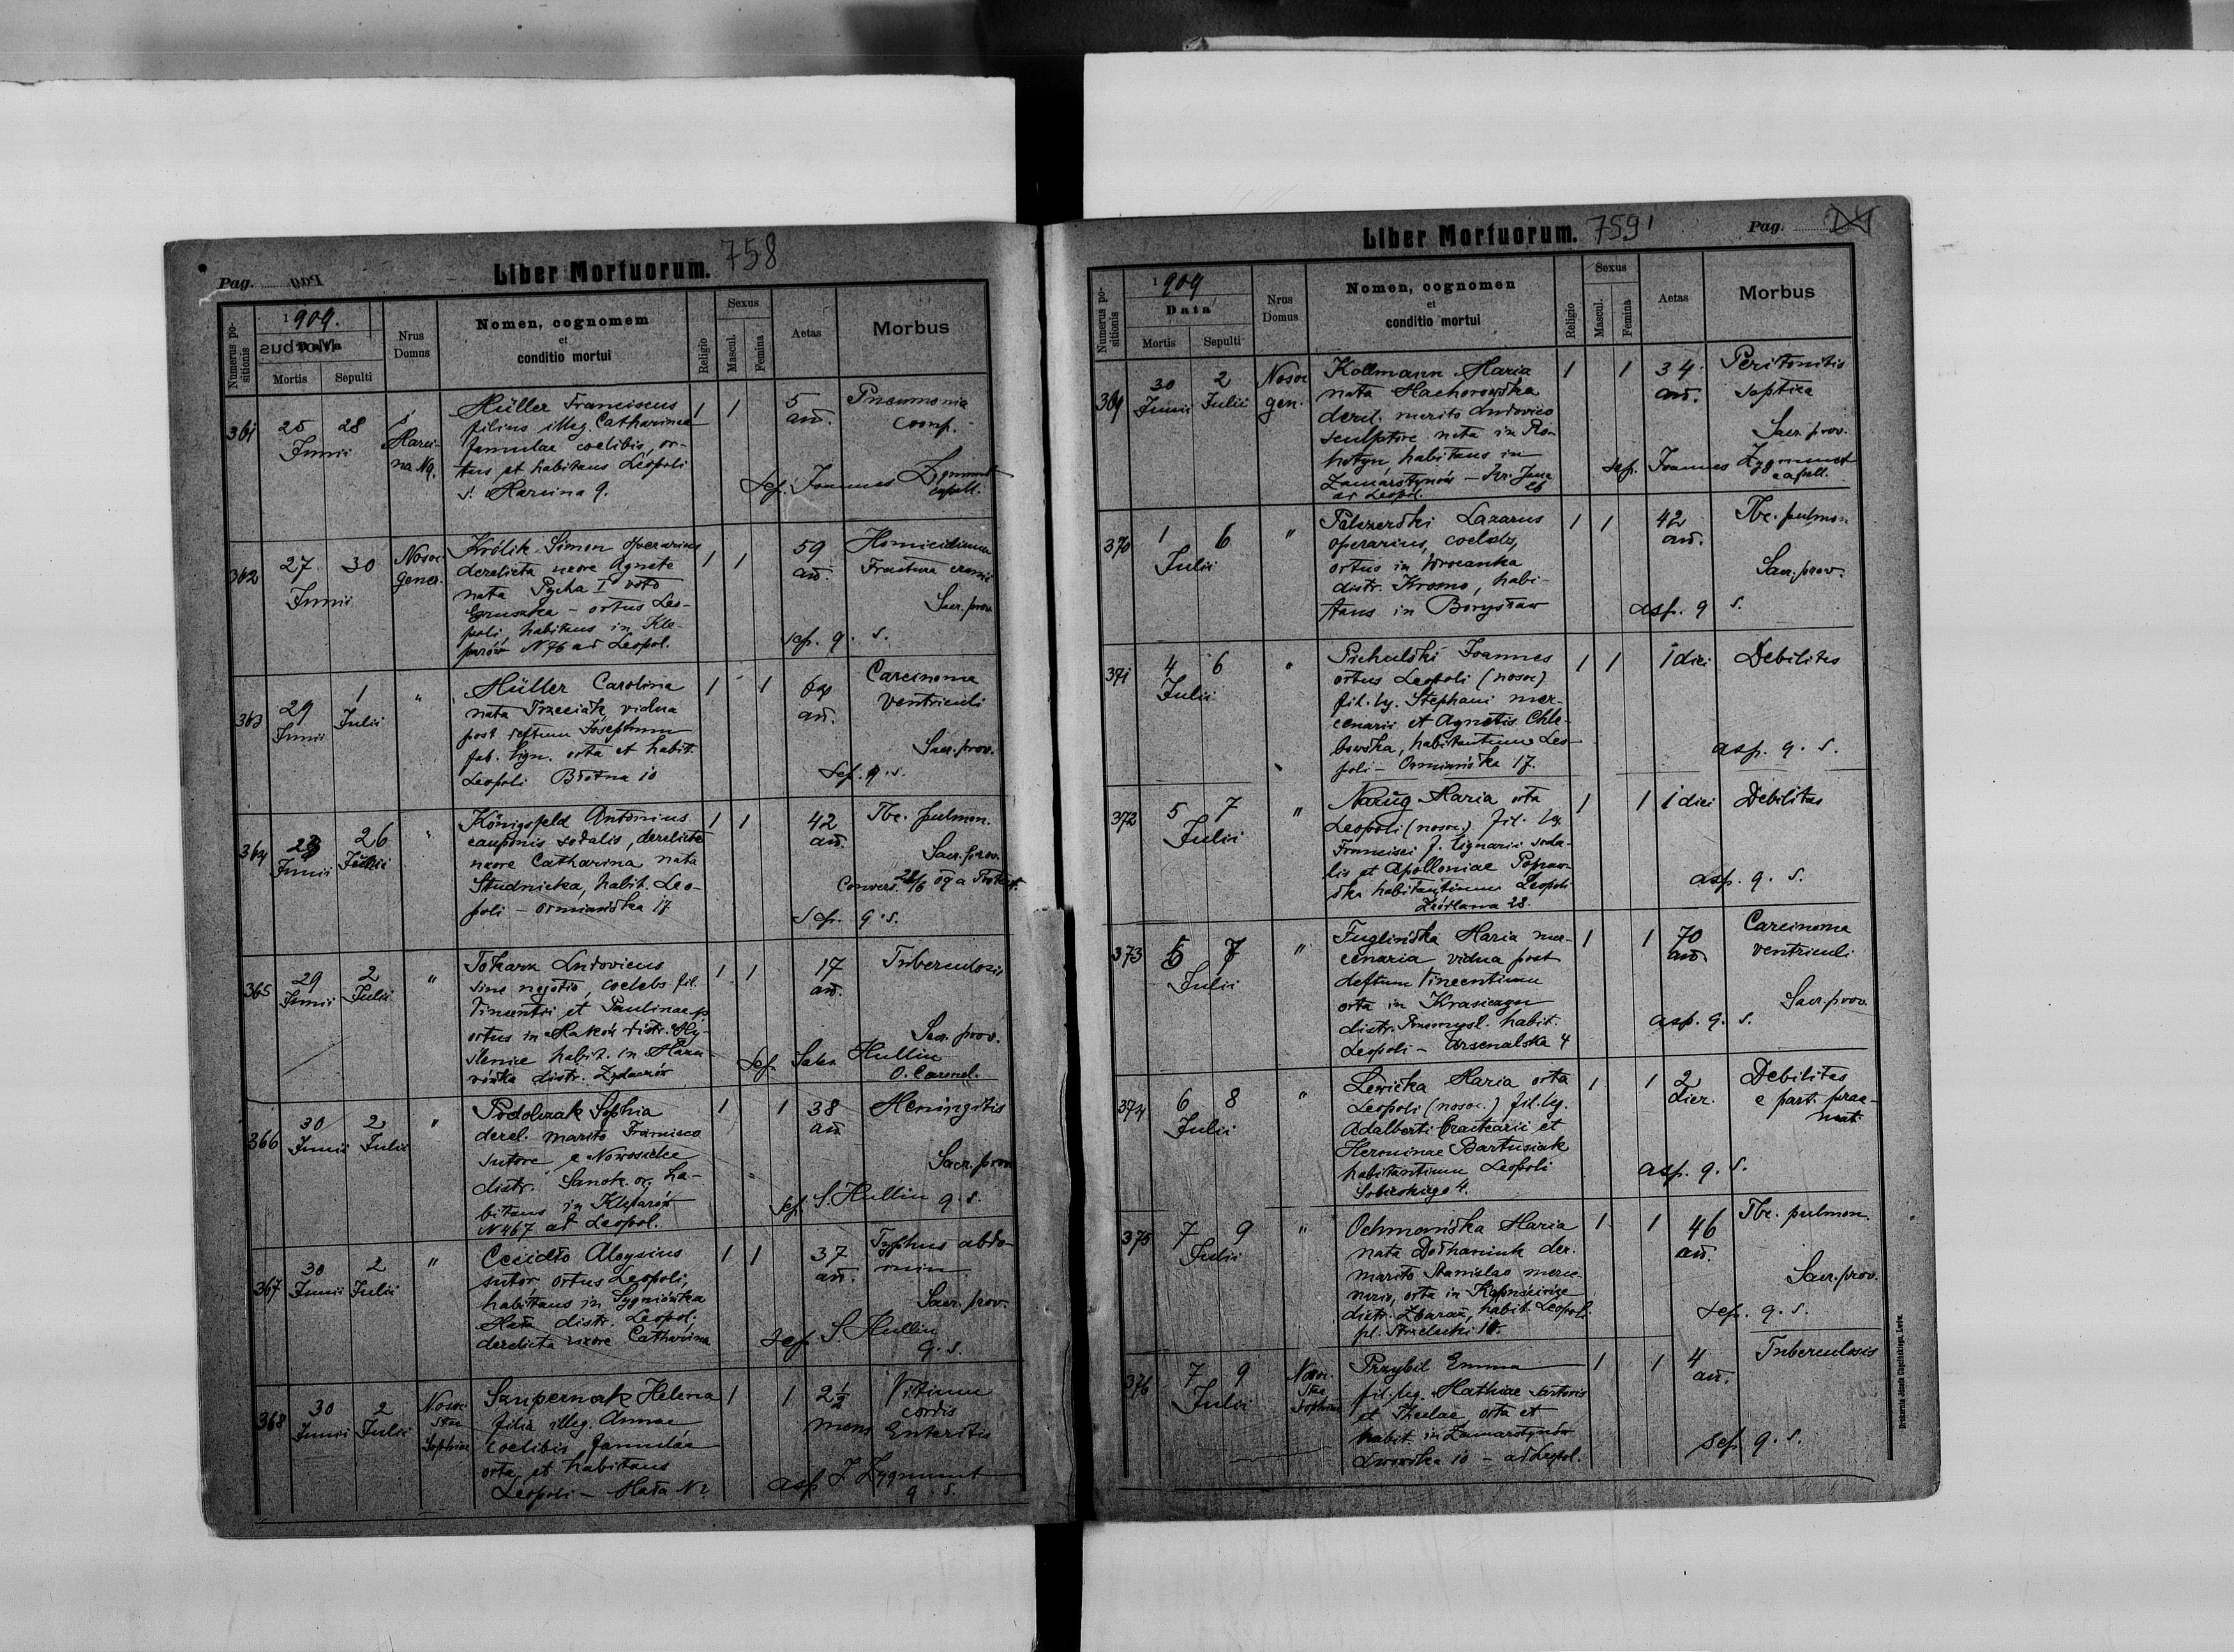 Pag.
Liber Mortuorum. 758
Numerus positionis
1909.
Data
Mortis
Sepulti
Nrus Domus
Nomen, cognomem
et
conditio mortui
Religio
Sexus
Mascul.
Femina
Aetas
Morbus
361
25 Junii
28
Müller Franciscus
filius illeg. Catharinae
famulae coelibis, or-
tus et habitans Leopoli
s. Marcina 9.
1
1
5 an.
Pneumonia
Sep. Joannes Zygmunt
capell.
362
27 Junii
30
Nosoc. gener.
Królik Simon operarius
derelicta uxore Agnete
nata Pycha I voto
ortus Leo-
poli, habitans in Kle-
parów N 76 ad Leopol.
1
1
59 an.
Homicidium
Fractura cranii
Sacr. prov.
sep. q. s.
363
29 Junii
1 Julii
"
Müller Carolina
nata Trzeciak, vidua
post deftum Josephum
fab. lign. orta et habit.
Leopoli Błotna 10
1
1
an.
Carcinoma
ventriculi
Sacr. prov.
Sep. q. s.
364
Junii
26
"
Königsfeld Antonius
cauponis sodalis, derelicta
uxore Catharina nata
Studnicka, habit. Leo-
poli - Ormiańska 17
1
1
42 an.
Tbc. pulmon.
Sacr. prov.
Convers. 09 a Protest.
Sep. q. s.
365
29 Junii
2 Julii
"
Tokarz Ludovicus
sine negotio, coelebs fil.
Vincentii et Paulinae
ortus in Maków distr. My-
ślenice habit. in
distr. Żydaczów
1
1
17 an.
Tuberculosis
Sacr. prov.
Sep. Hullin
O. Carmel.
366
30 Junii
2 Julii
"
Podolczak Sophia
derel. marito Francisco
sutore e Nowosielce
distr. Sanok. ha-
bitans in Kleparów
N 467 ad Leopol.
1
1
38 an.
Meningitis
Sacr. prov.
Sep. S. Hullin q. s.
367
30 Junii
2 Julii
"
Aloysius
sutor ortus Leopoli,
habitans in Sygniówka
Mała distr. Leopol.
derelicta uxore Catharina
1
1
37 an.
Typhus abdo-
min.
Sacr. prov.
Sep. S Hullin
q. s.
368
30 Junii
2 Julii
Nosoc. Stae Sophiae
Helena
filia illeg. Annae
coelibis famulae
orta et habitans
Leopoli - Mała N 2
1
1
2 1/2 mens
Vitium
cordis
Enteritis
asp J Zygmunt
q. s.
Liber Mortuorum. 759
Pag.
Numerus positionis
1909
Data
Mortis
Sepulti
Nrus Domus
Nomen, cognomen
et
conditio mortui
Religio
Sexus
Mascul.
Femina
Aetas
Morbus
369
30 Junii
2 Julii
Nosoc gen.
Kollmann Maria
nata Machorowska
derel. marito Ludovico
sculptore nata in Ro-
hatyn, habitans in
Zamarstynów
ad Leopol.
1
1
34 an.
Peritonitis
septica
Sacr. prov.
sep. Joannes Zygmunt
capell.
370
1 Julii
6
"
Lazarus
operarius, coelebs,
ortus in Wrocanka
distr. Krosno, habi-
tans in Borysław
1
1
42 an.
Tbc. pulmon
Sacr. prov.
asp. q s.
371
4 Julii
6
"
Joannes
ortus Leopoli (nosoc)
fil. leg. Stephani mer-
cenarii et Agnetis Chle-
bowska, habitantium Leo-
poli - Ormiańska 17.
1
1
1 diei
Debilitas
asp. q. s.
372
5 Julii
7
"
Maria orta
Leopoli (nosoc.) fil. leg.
Francisci f. lignarii soda-
lis et Apolloniae Popraw-
ska habitantium Leopoli
Źródlana 28.
1
1
1 diei
Debilitas
asp. q. s.
373
5 Julii
7
"
Fuglińska Maria mer-
cenaria vidua post
deftum Vincentium
orta in Krasiczyn
distr. Przemysl. habit.
Leopoli - Arsenalska 4
1
1
70 an.
Carcinoma
ventriculi
Sacr. prov.
asp. q. s.
374
6 Julii
8
"
Lewicka Maria orta
Leopoli (nosoc.) fil. leg.
Adalberti et
Herminae Bartusiak
habitantium Leopoli
Sobieskiego 4.
1
1
2 dier.
Debilitas
e part. prae-
mat.
asp. q. s.
375
7 Julii
9
"
Ochmańska Maria
nata der.
marito Stanislao merce-
nario, orta in
distr. Zbaraż, habit. Leopoli
pl. Strzelecki
1
1
46 an.
Tbc. pulmon.
Sacr. prov.
sep. q. s.
376
7 Julii
9
Nosoc. Stae Sophiae
Przybil Emma
fil. leg. Mathiae sartoris
et Theclae, orta et
habit. in Zamarstynów
Lwowska 10 - ad Leopol.
1
1
4 an.
Tuberculosis
sep. q. s.